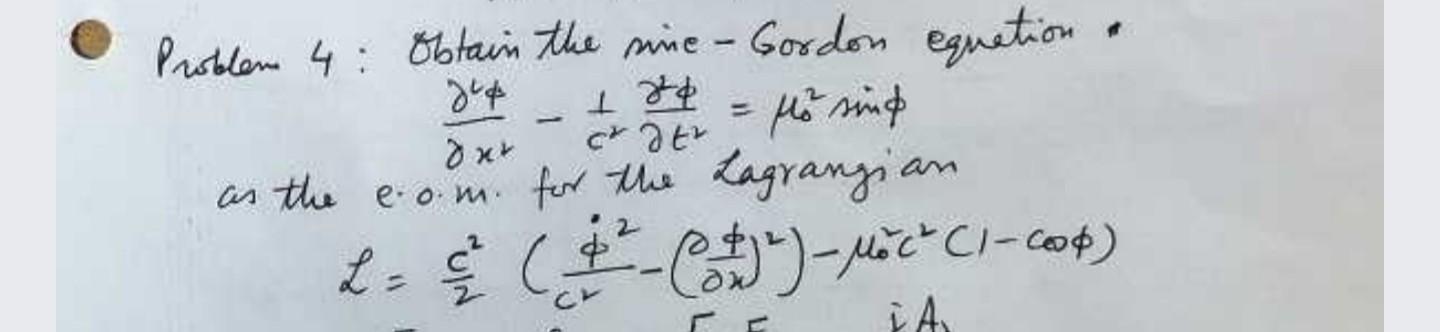 Problem 4 : Obtain the sine - Gordon equation .
∂²φ/∂x² - 1/c² ∂²φ/∂t² = μ₀² sinφ
as the e.o.m. for the Lagrangian
ℒ = c²/2 ( φ̇²/c² - (∂φ/∂x)² ) - μ₀²c² (1 - cosφ)